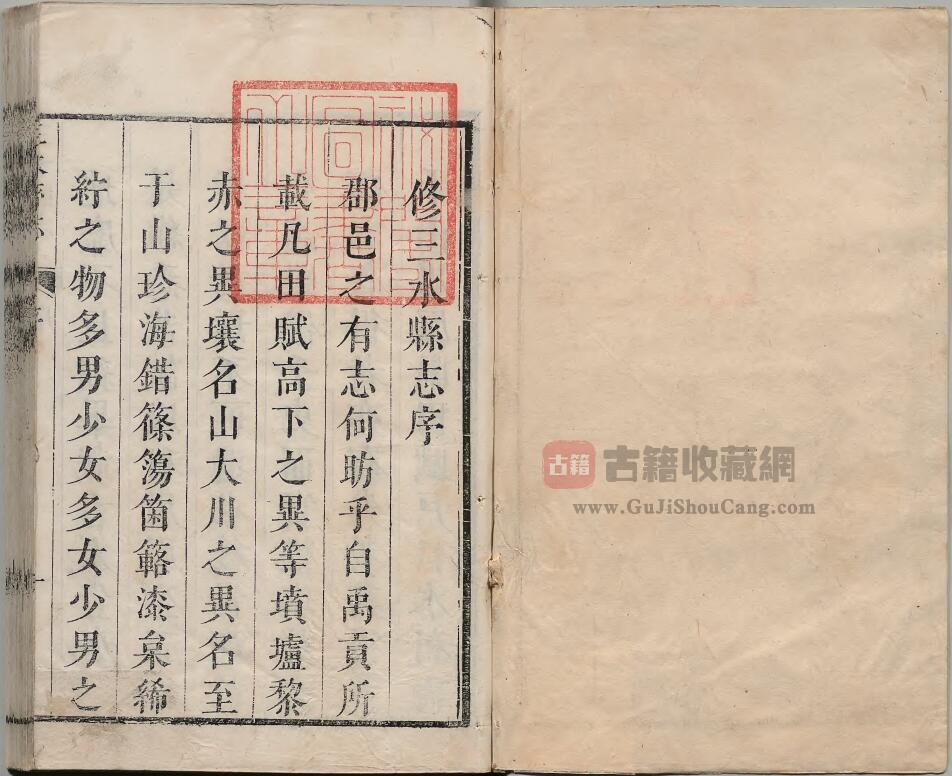 修三水縣志序
郡邑之有志何昉乎自禹貢所
載凡田賦高下之異等墳壚黎
赤之異壤名山大川之異名至
于山珍海錯篠簜箘簵漆枲絺
紵之物多男少女多女少男之
古籍
古籍收藏網
www.GuJiShouCang.com